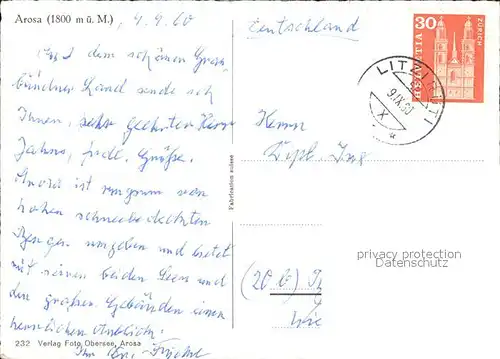 Arosa (1800 m ü. M.) 4.9.60
Aus dem schönen Grau-
bündner Land sende ich
Ihnen, sehr geehrter Herr
Jahns, frdl. Grüße.
Arosa ist ringsum von
hohen schneebedeckten
Bergen umgeben und bietet
mit seinen beiden Seen und
den großen Gebäuden einen
herrlichen Anblick.
Ihr
232 Verlag Foto Obersee, Arosa
Fabrication suisse
Deutschland
30
HELVETIA
ZÜRICH
LITZIRÜTI
Herrn
Dipl. Ing
(20 b)
privacy protection
Datenschutz